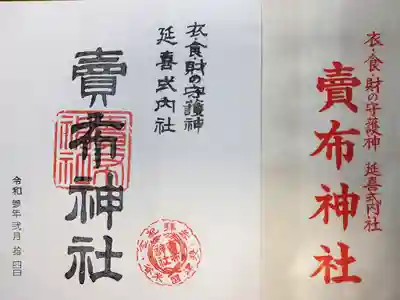 衣・食・財の守護神
延喜式内社
賣布神社
令和参年弐月拾四日
衣・食・財の守護神 延喜式内社
賣布神社